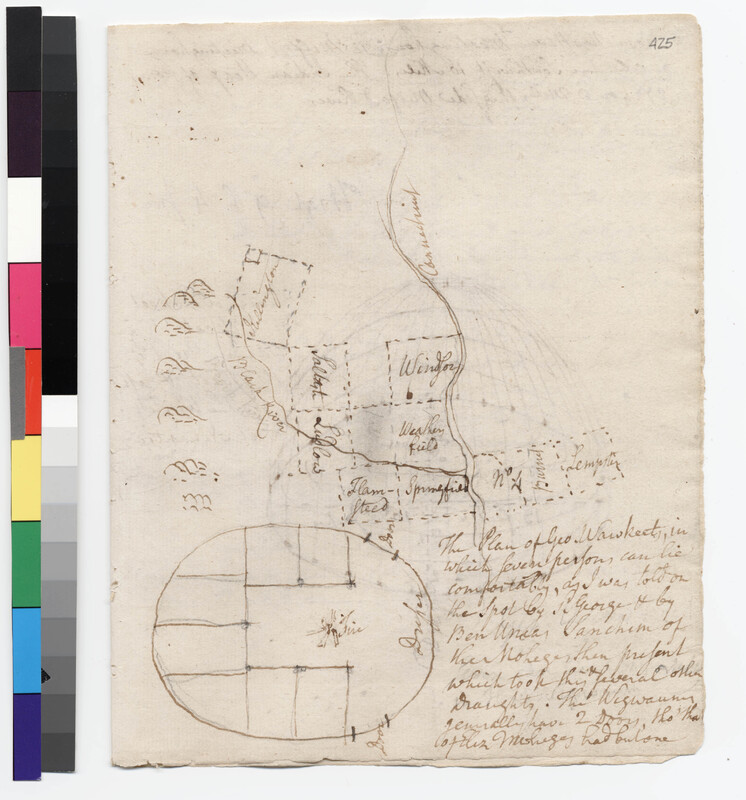 425
Connecticut
Black River
Saltash
Windsor
Ludlow
Weathers
field
Flam
steed
Springfield
No 4
Lempster
Door
Dresser
Fire
Door
The Plan of Geo. Wawkeets, in
which seven persons can lie
comfortably, as I was told on
the Spot by Sd George & by
Ben Uncas Sanchim of
the Moheges then present
which took this & several other
Draughts. The Wigwaums
generally have 2 Doors, tho' that
of the Moheges had but one